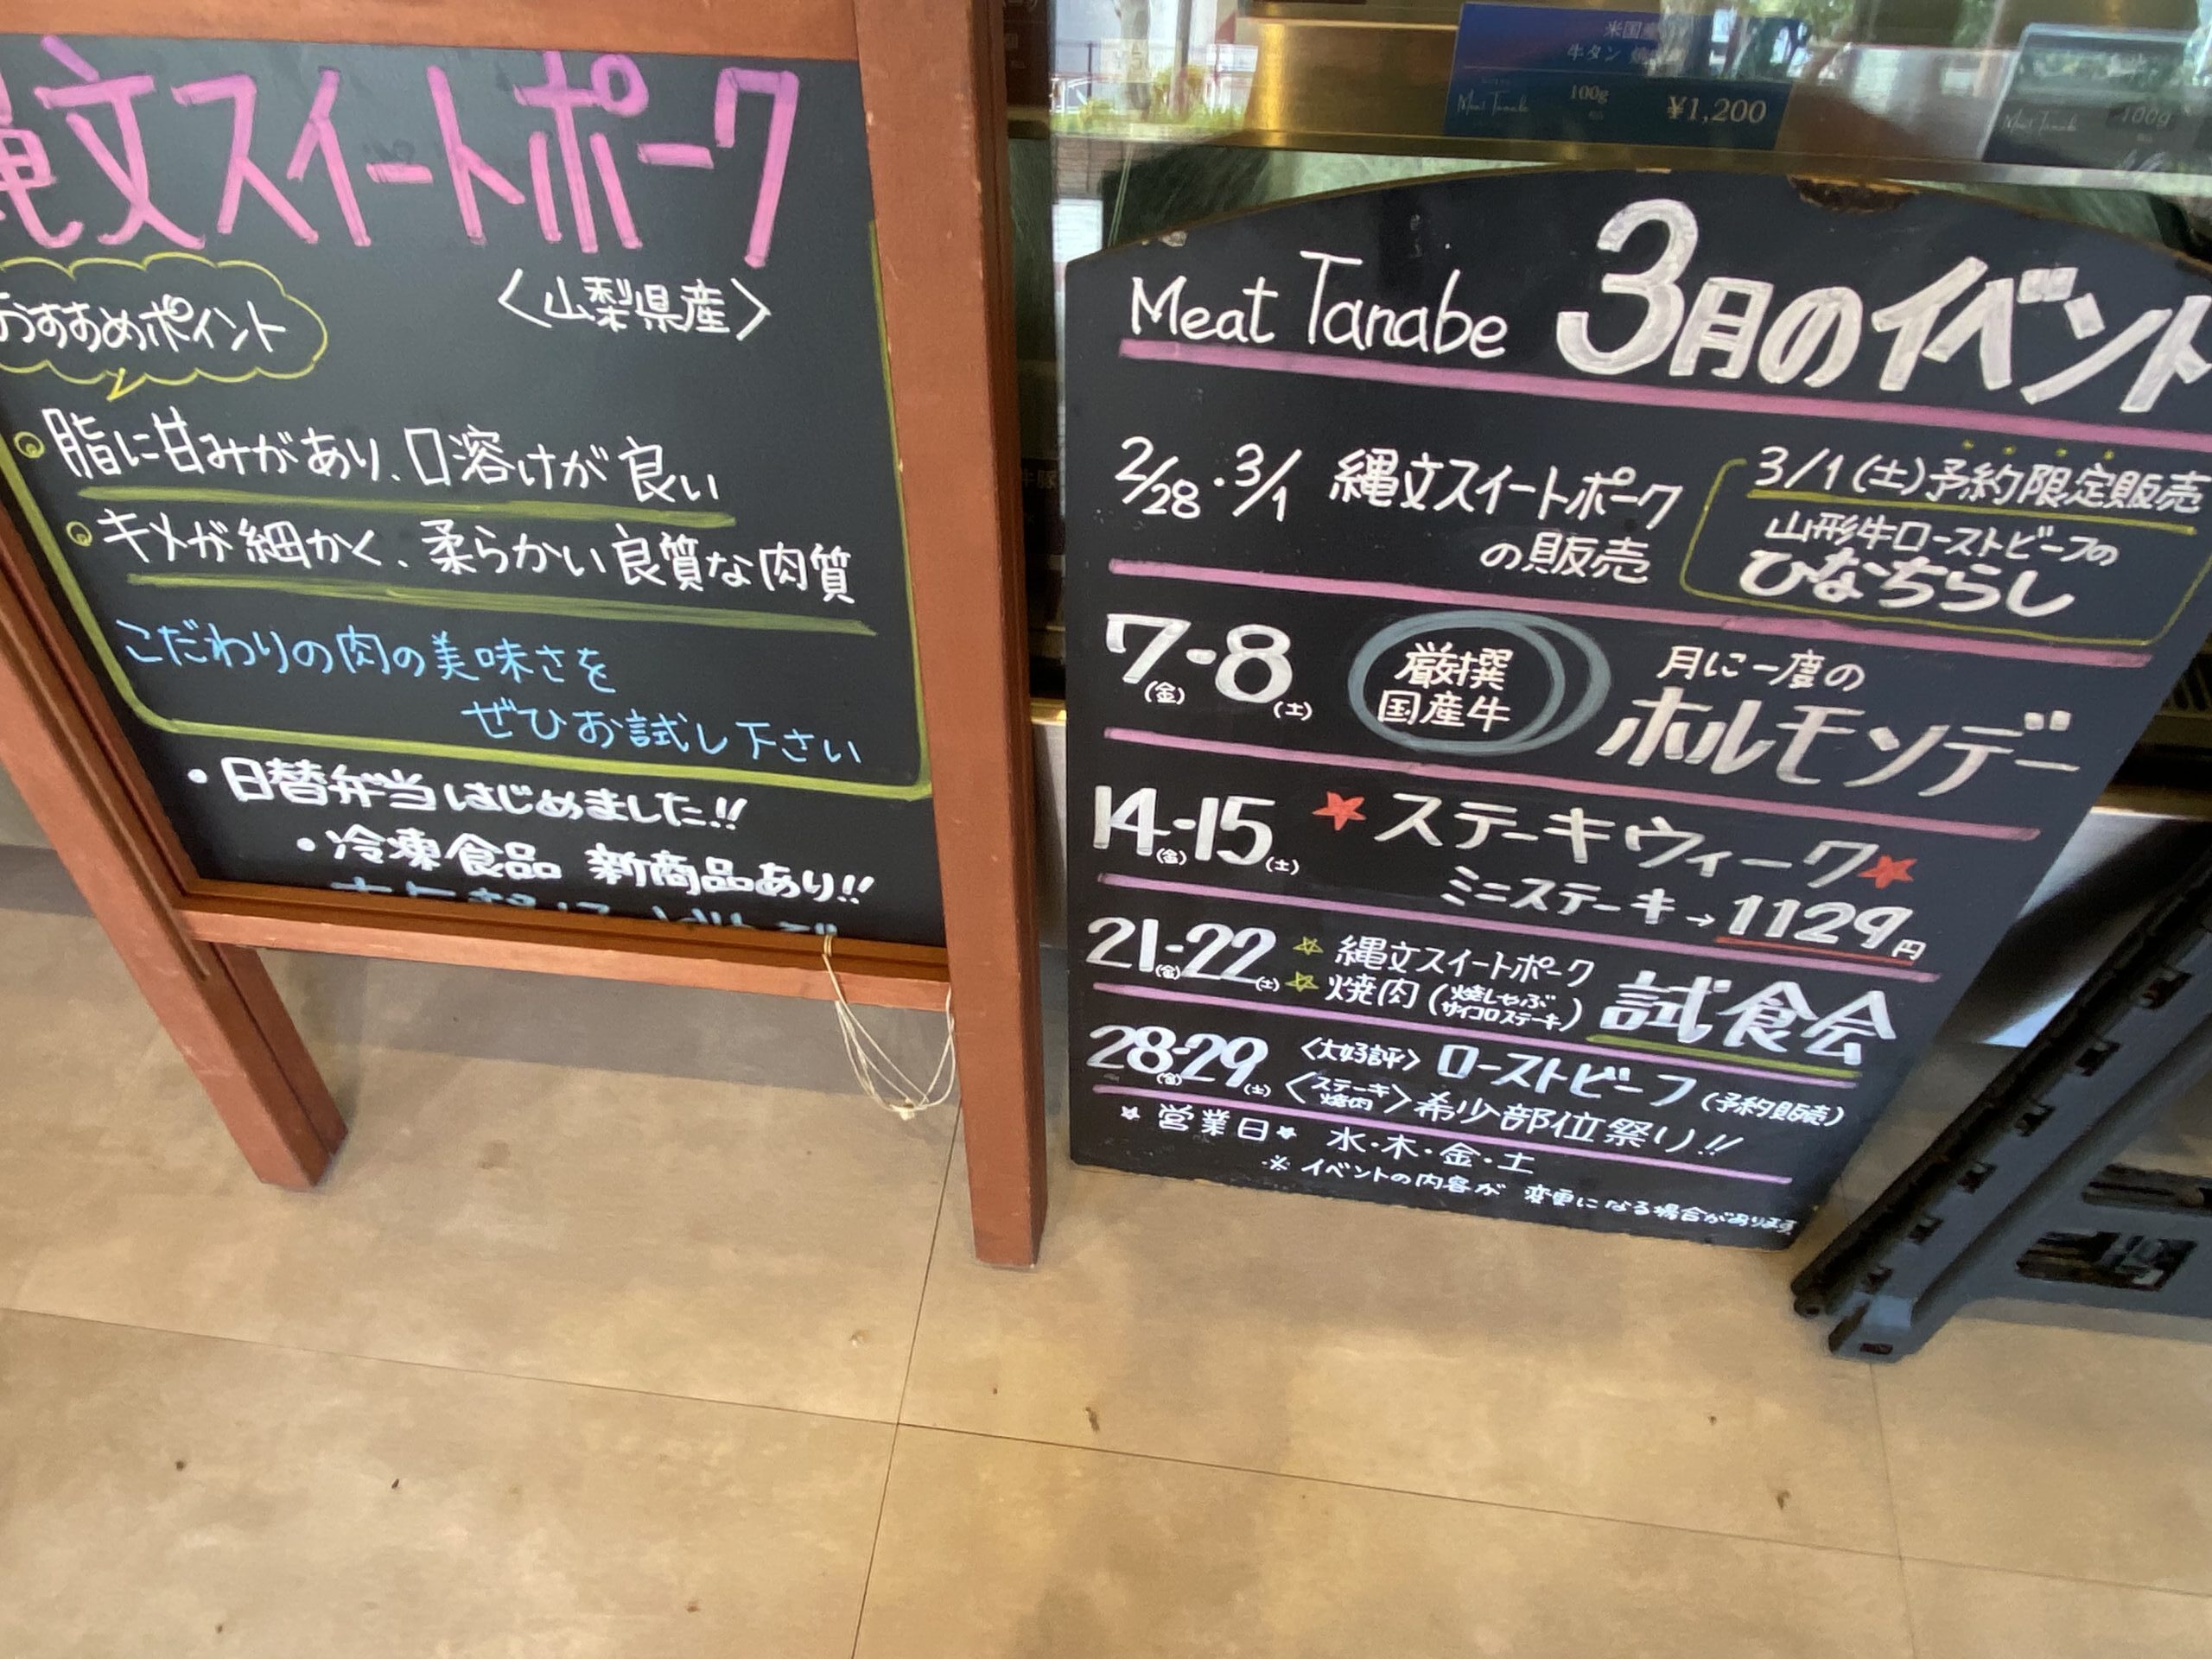 縄文スイートポーク
〈山梨県産〉
おすすめポイント
脂に甘みがあり、口溶けが良い
キメが細かく、柔らかい良質な肉質
こだわりの肉の美味さを
ぜひお試し下さい
・日替弁当はじめました!!
・冷凍食品 新商品あり!!
米国産
牛タン
Meat Tanabe
100g
¥1,200
Meat Tanabe
100g
Meat Tanabe 3月のイベント
2/28・3/1 縄文スイートポーク
の販売
3/1(土)予約限定販売
山形牛ローストビーフの
ひなちらし
7(金)-8(土)
厳撰
国産牛
月に一度の
ホルモンデー
14(金)-15(土) ★ステーキウィーク★
ミニステーキ→1129円
21(金)-22(土) ☆縄文スイートポーク
☆焼肉(焼しゃぶ
サイコロステーキ)
試食会
28(金)-29(土) 〈大好評〉ローストビーフ(予約販売)
〈ステーキ
焼肉〉希少部位祭り!!
★営業日★ 水・木・金・土
※イベントの内容が変更になる場合があります